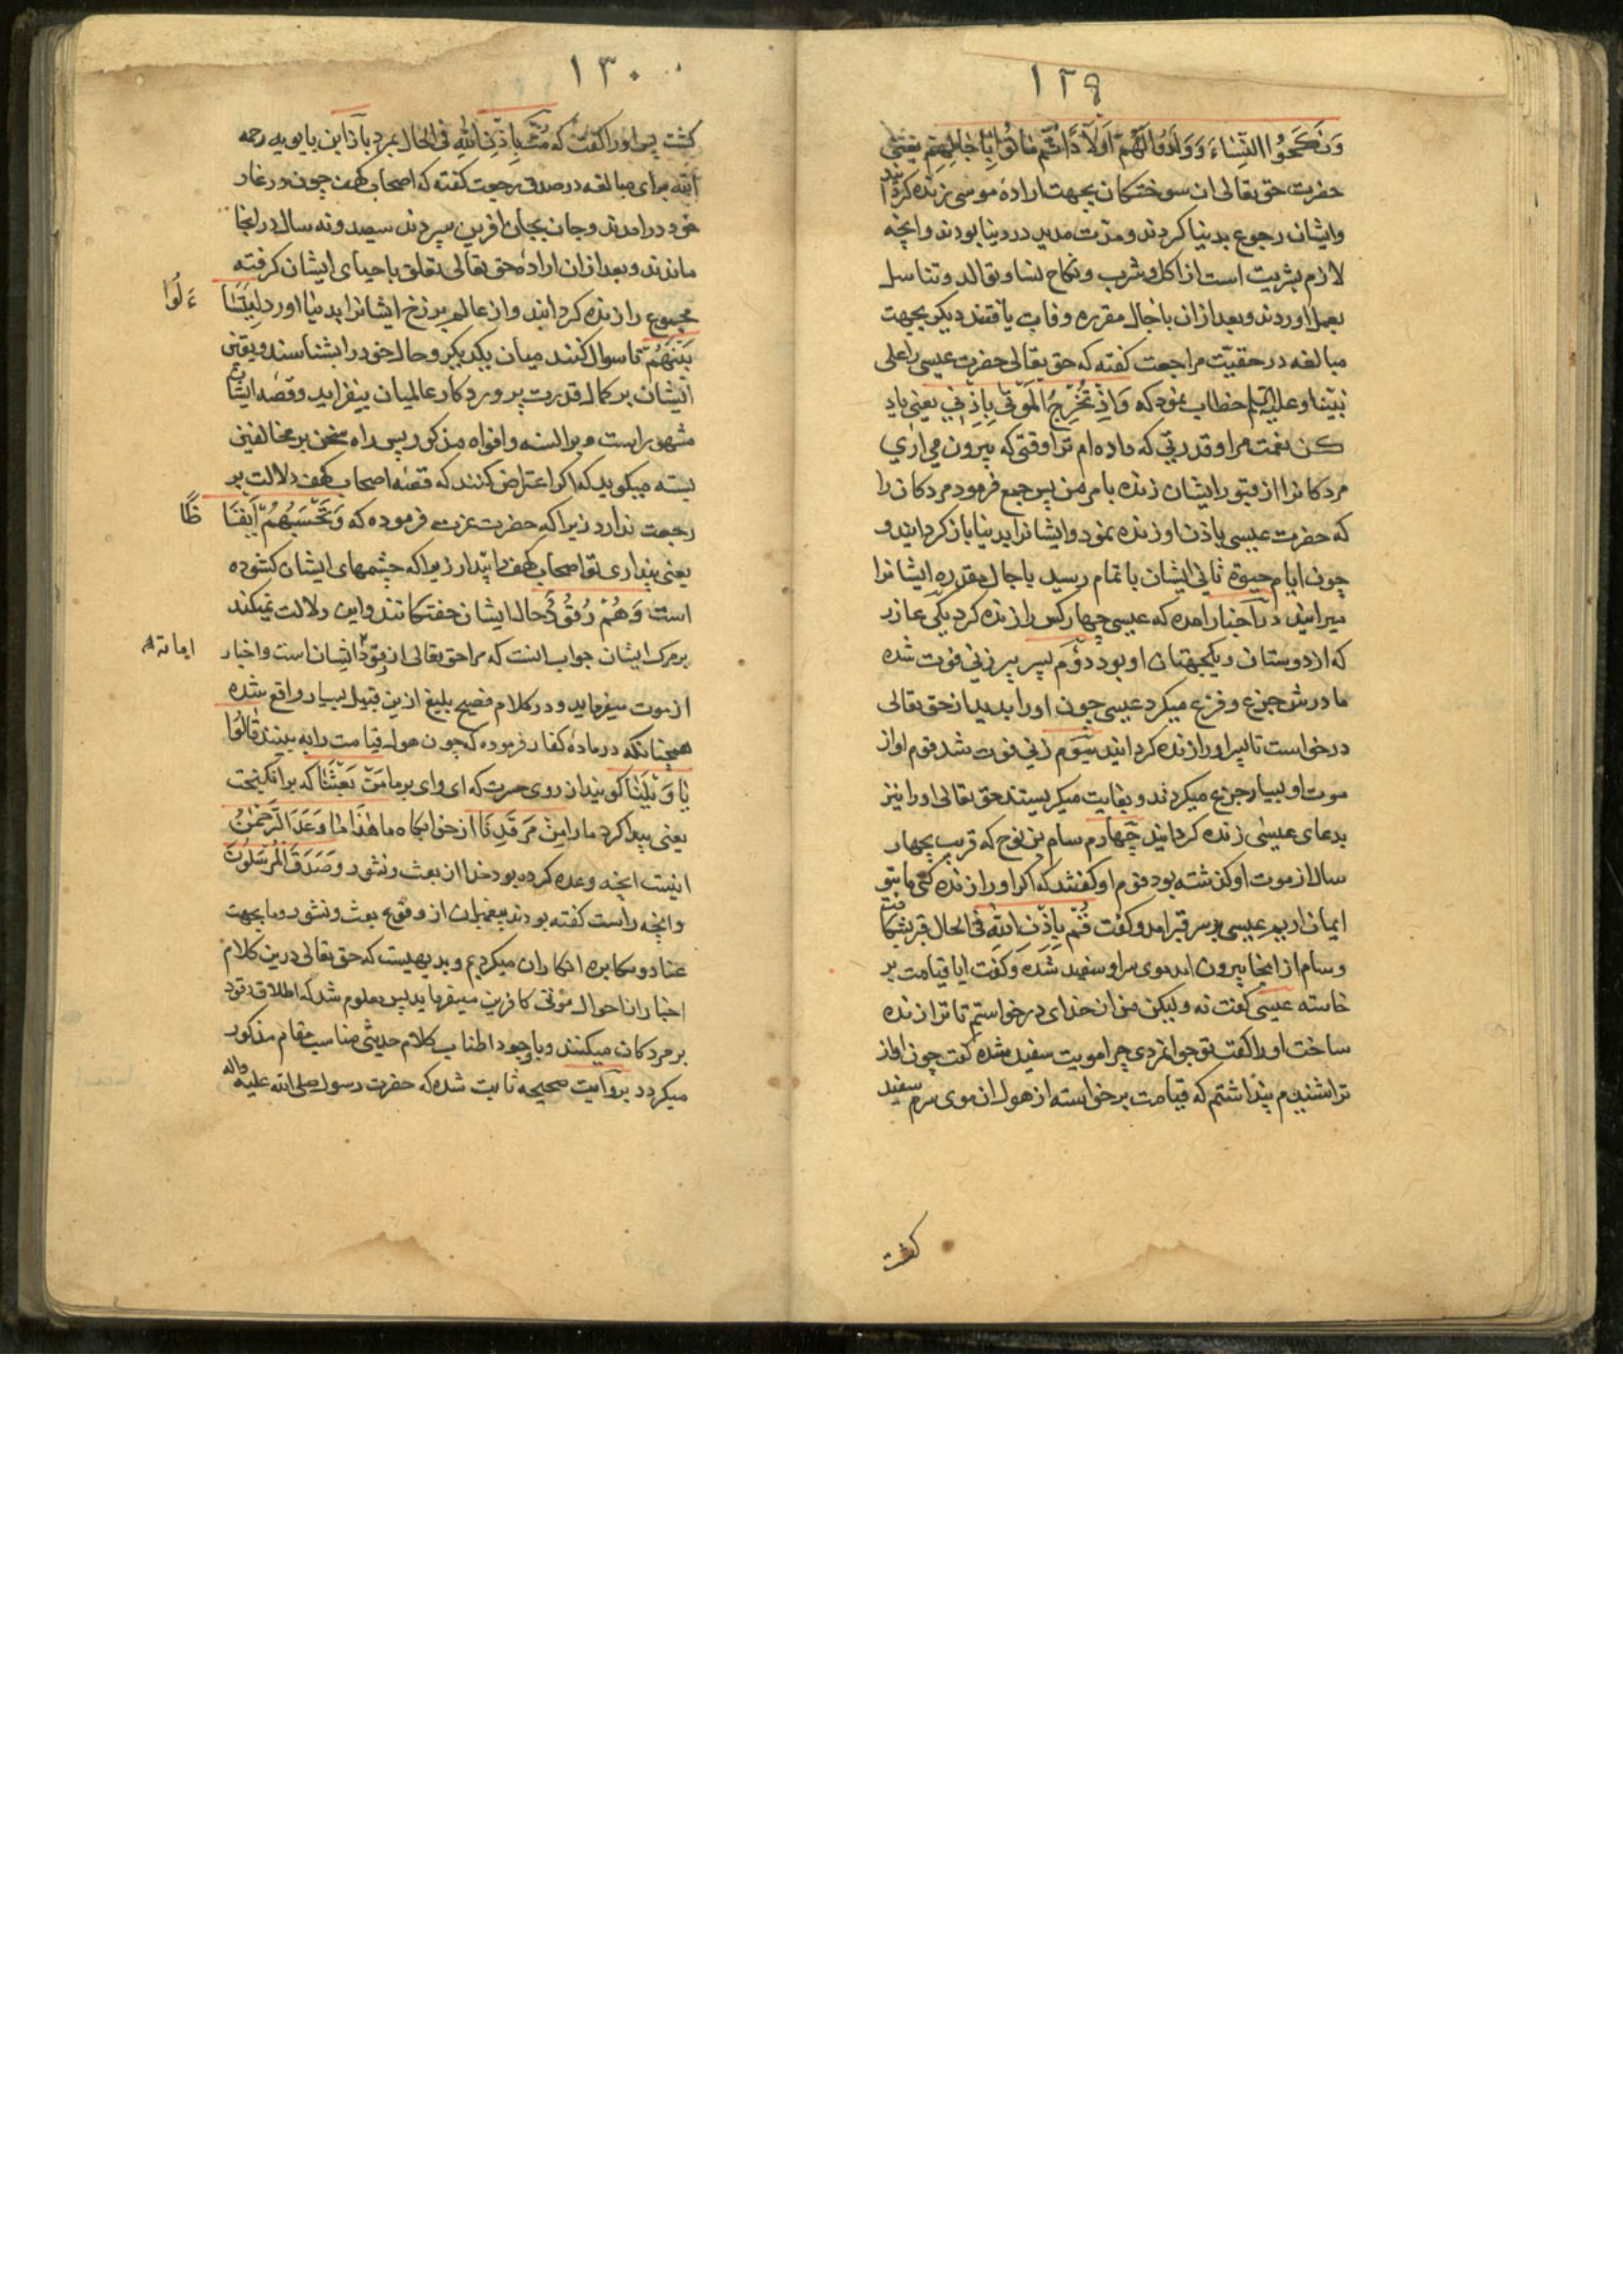 ١٢٩
وَنَكَحُوا النِّسَاءَ وَوَلَدُوا لَهُمْ اَوْلَادًا ثُمَّ مَاتُوا بِآجَالِهِمْ یعنی
حضرت حق تعالی ان سوختکان بجهت اراده موسی زنده کردانید
وایشان رجوع بدنیا کردند و مدت مدید در دنیا بودند وانچه
لازم بشریت است از اکل و شرب ونکاح نسا و توالد وتناسل
بعمل اوردند وبعد از ان باجال مقرره وفات یافتند دیکر بجهت
مبالغه در حقیّت مراجعت کفته که حق تعالی حضرت عیسی را علی
نبیّنا وعلیه السلم خطاب نمود که وَاِذْ تُخْرِجُ الْمَوْتٰی بِاِذْنِی یعنی یاد
کن نعمت مرا و قدرتی که داده ام ترا وقتی که بیرون می اری
مردکانرا از قبور ایشان زنده بامر من پس جمع فرمود مردکان را
که حضرت عیسی باذن او زنده نمود وایشانرا بدنیا باز کردانید و
چون ایام حیوة ثانی ایشان باتمام رسید باجال مقدره ایشانرا
میرانید در اخبار امده که عیسی چهار کس را زنده کرد یکی عازر
که از دوستان و یکجهتان او بود دوّم پسر پیرزنی فوت شده
مادرش جزع و فزع میکرد عیسی چون او را بدید از حق تعالی
درخواست تا پسر او را زنده کردانید سیّوم زنی فوت شد قوم او از
موت او بسیار جزع میکردند و بغایت میکریستند حق تعالی او را نیز
بدعای عیسی زنده کردانید چهارم سام بن نوح که قریب بچهار
سال از موت او کذشته بود قوم او کفتند که اکر او را زنده کنی ما بتو
ایمان اریم عیسی بر سر قبر امد و کفت قُمْ بِاِذْنِ اللّهِ فی الحال قبر بشکافت
وسام از انجا بیرون امد موی سر او سفید شده وکفت ایا قیامت بر
خاسته عیسی کفت نه ولیکن من از خدای درخواستم تا ترا زنده
ساخت او را کفت تو جوانمردی چرا مویت سفید شده کفت چون اواز
ترا شنیدم پنداشتم که قیامت برخواسته از هول ان موی سرم سفید
کشت
١٣٠
کشت پس او را کفت که مُتْ بِاِذْنِ اللّهِ فی الحال بمرد باز ابن بابویه رحمه
الله برای مبالغه در صدق رجعت کفته که اصحاب کهف چون در غار
خود درامدند وجان بجان افرین سپردند سیصد ونه سال در انجا
ماندند و بعد از ان اراده حق تعالی تعلق باحیای ایشان کرفته
مجموع را زنده کردانید واز عالم برزخ ایشانرا بدنیا اورد لِیَتَسَا
ءَلُوا
بَیْنَهُمْ تا سوال کنند میان یکدیکر وحال خود را بشناسند ویقین
ایشان بر کمال قدرت پروردکار عالمیان بیفزاید وقصه ایشان
مشهور است و بر السنه وافواه مذکور پس راه سخن بر مخالفین
بسته میکوید که اکر اعتراض کنند که قصه اصحاب کهف دلالت بر
رجعت ندارد زیرا که حضرت عزت فرموده که وَتَحْسَبُهُمْ اَیْقَا
ظًا
یعنی پنداری تو اصحاب کهف را بیدار زیرا که چشمهای ایشان کشوده
است وَهُمْ رُقُودٌ حال ایشان خفتکانند واین دلالت نمیکند
بر مرک ایشان جواب انست که مراد حق تعالی از رقود ایشان است و اخبار
اماته
از موت میفرماید و در کلام فصیح بلیغ ازین قبیل بسیار واقع شده
همچنانکه در ماده کفار فرموده که چون هول قیامت را به بینند قَالُوا
یَا وَیْلَنَا کویند از روی حسرت که ای وای بر ما مَنْ بَعَثَنَا که برانکیخت
یعنی بیدار کرد ما را مِنْ مَرْقَدِنَا از خوابکاه ما هٰذَا مَا وَعَدَ الرَّحْمٰنُ
اینست انچه وعده کرده بود خدا از بعث ونشور وَصَدَقَ الْمُرْسَلُونَ
وانچه راست کفته بودند پیغمبران از وقوع بعث ونشور وما بجهت
عناد ومکابره انکار ان میکردیم وبدیهیست که حق تعالی درین کلام
اخبار از احوال موتی کافرین میفرماید پس معلوم شد که اطلاق رقود
بر مردکان میکنند وباوجود اطناب کلام حدیثی مناسب مقام مذکور
میکردد بروایت صحیحه ثابت شده که حضرت رسول صلی الله علیه واله